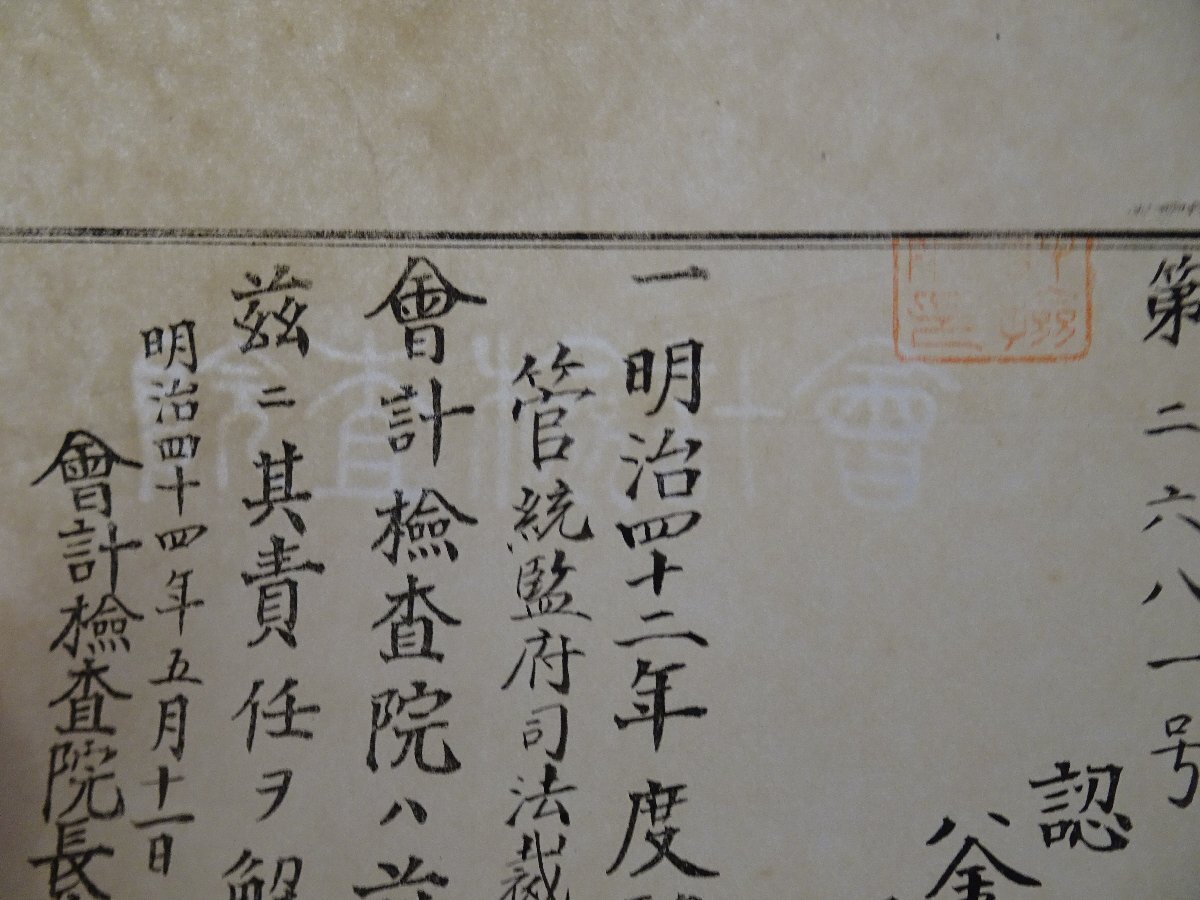 第二六八一号
認
釜
一 明治四十二年度
管統監府司法裁
會計檢査院ハ
茲ニ其責任ヲ解
明治四十四年五月十一日
會計檢査院長
會計檢査院